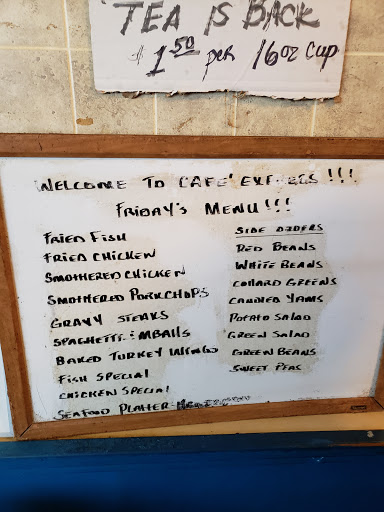 TEA IS BACK
$1.50 per 16oz Cup
WELCOME TO CAFE' EXPRESS !!!
FRIDAY'S MENU!!!
FRIED FISH
FRIED CHICKEN
SMOTHERED CHICKEN
SMOTHERED PORKCHOPS
GRAVY STEAKS
SPAGHETTI & MBALLS
BAKED TURKEY WINGS
FISH SPECIAL
CHICKEN SPECIAL
SEAFOOD PLATTER
SIDE ORDERS
RED BEANS
WHITE BEANS
COLLARD GREENS
CANDIED YAMS
POTATO SALAD
GREEN SALAD
GREEN BEANS
SWEET PEAS